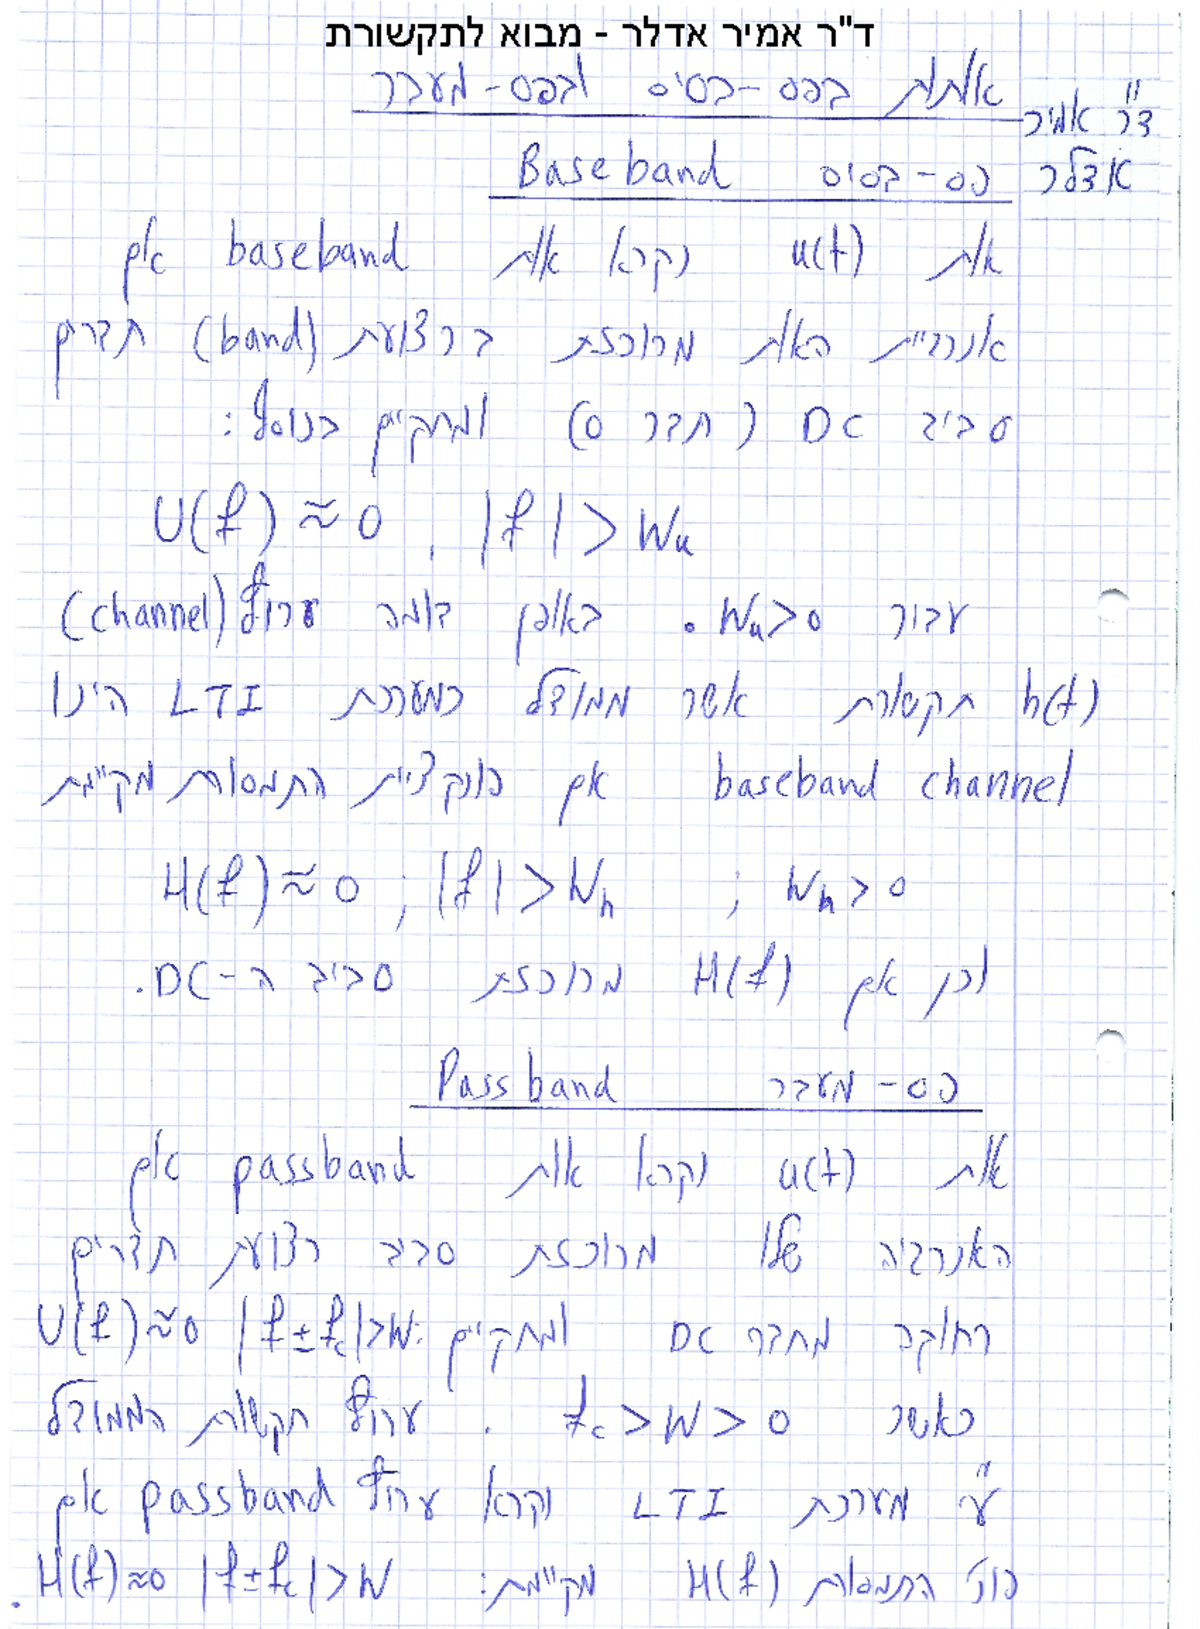 ד"ר אמיר אדלר - מבוא לתקשורת
אותות בפס-בסיס ובפס-מעבר
ד"ר אמיר
אדלר
פס-בסיס Baseband
אות u(t) נקרא אות baseband אם
אנרגיית האות מרוכזת ברצועת (band) תדרים
סביב DC (תדר 0) ומתקיים בנוסף:
U(f) ≈ 0 , |f| > Wu
עבור Wu>0. באופן דומה ערוץ (channel)
תקשורת h(t) אשר ממודל כמערכת LTI הינו
baseband channel אם פונקציית התמסורת מקיימת
H(f) ≈ 0 ; |f| > Wh ; Wh > 0
וכן אם H(f) מרוכזת סביב ה-DC.
פס-מעבר Passband
אות u(t) נקרא אות passband אם
האנרגיה שלו מרוכזת סביב רצועת תדרים
רחוקה מתדר DC ומתקיים: U(f)≈0 |f±fc|>W
כאשר fc > W > 0 . ערוץ תקשורת הממודל
ע"י מערכת LTI נקרא ערוץ passband אם
פונ' התמסורת H(f) מקיימת: H(f)≈0 |f±fc|>W.